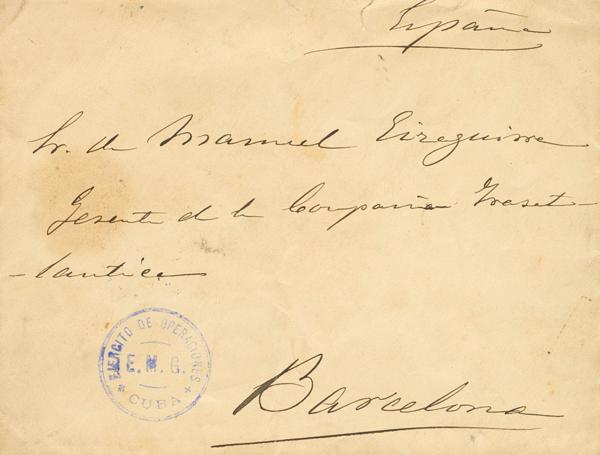 España
Sr. dn Manuel Eizaguirre
Gerente de la Compañia Trasat-
-lantica
EJERCITO DE OPERACIONES
E. M. G.
* CUBA *
Barcelona